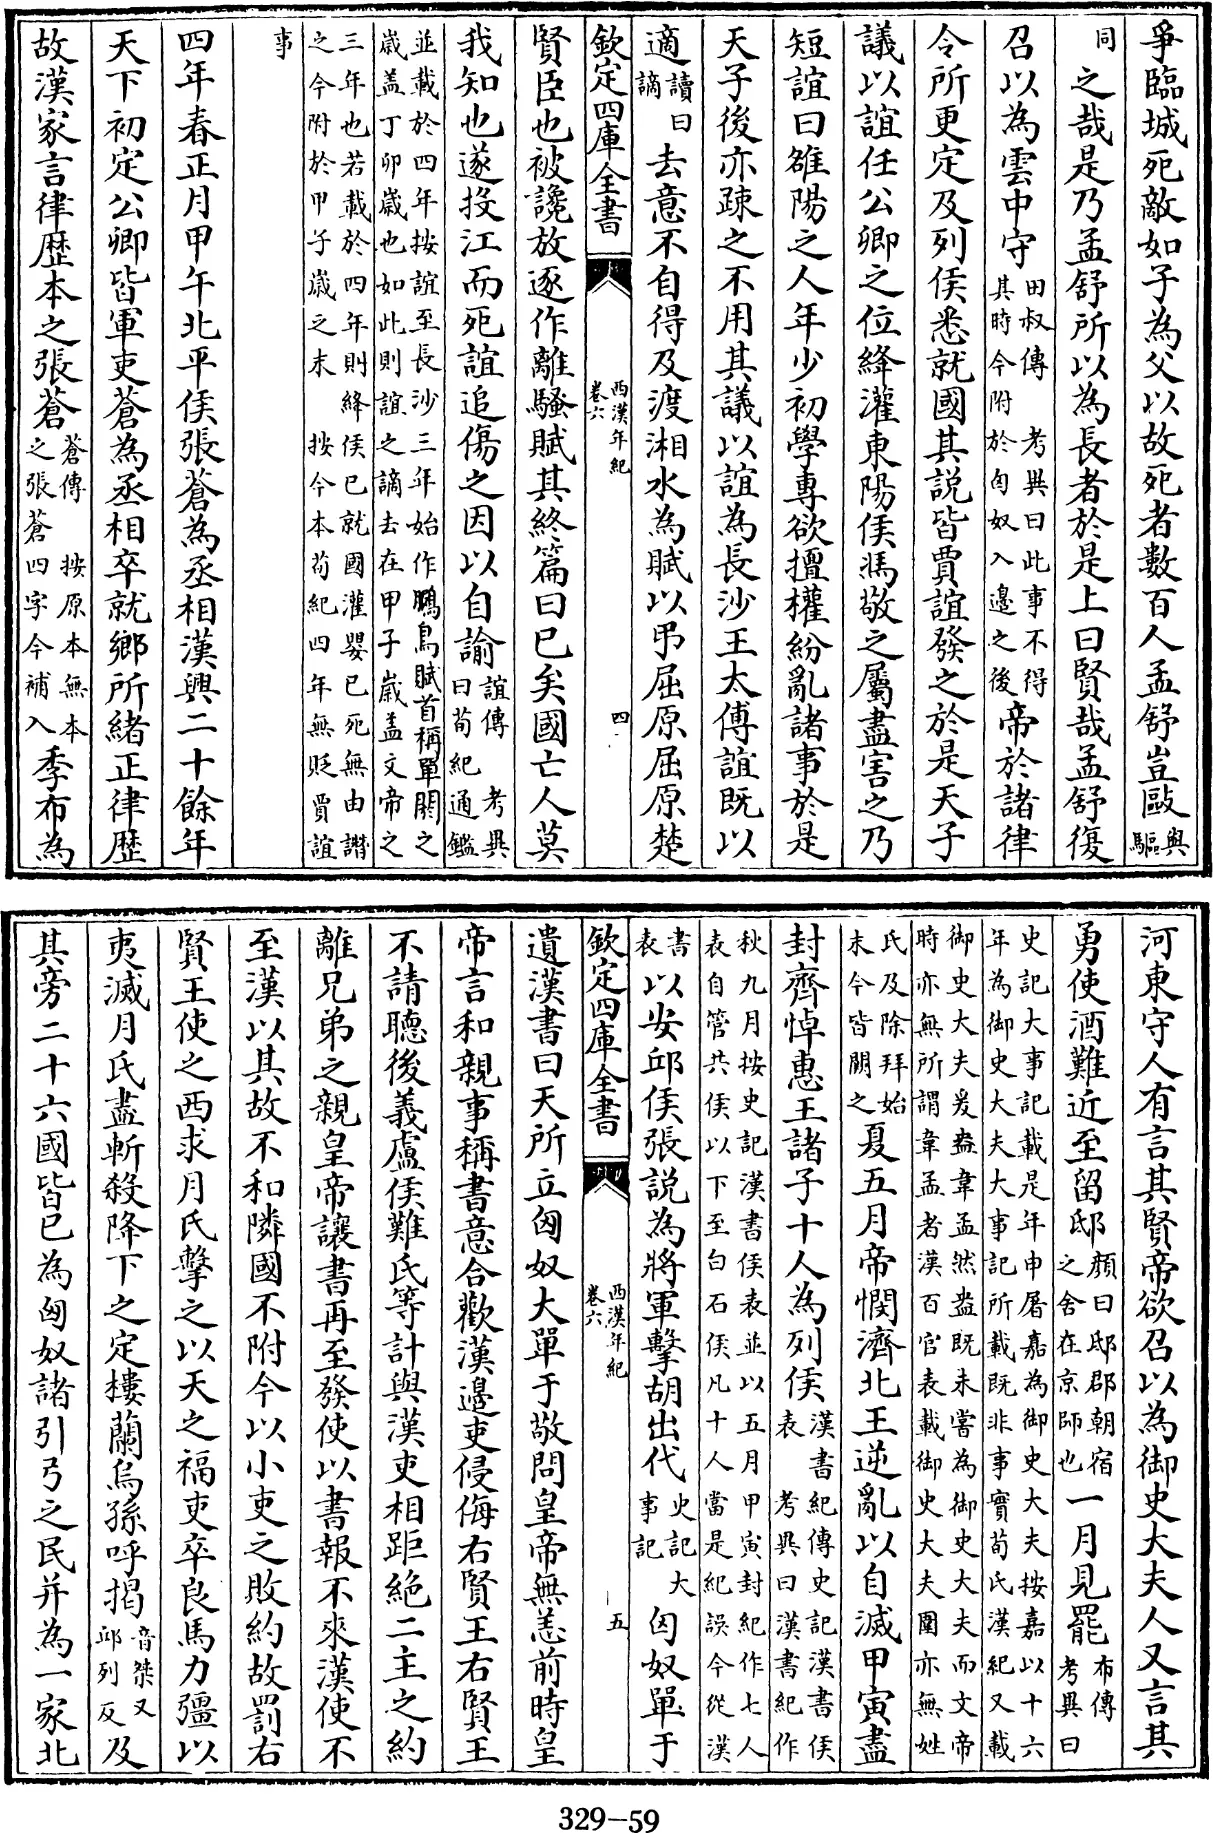 爭臨城死敵如子為父以故死者數百人孟舒豈敺與驅
同之哉是乃孟舒所以為長者於是上曰賢哉孟舒復
召以為雲中守田叔傳 考異曰此事不得其時今附於匈奴入邊之後帝於諸律
令所更定及列侯悉就國其説皆賈誼發之於是天子
議以誼任公卿之位絳灌東陽侯馮敬之屬盡害之乃
短誼曰雒陽之人年少初學專欲擅權紛亂諸事於是
天子後亦疎之不用其議以誼為長沙王太傅誼既以
適讀曰謫去意不自得及渡湘水為賦以弔屈原屈原楚
欽定四庫全書 西漢年紀卷六 四
賢臣也被讒放逐作離騷賦其終篇曰已矣國亡人莫
我知也遂投江而死誼追傷之因以自諭誼傳 考異曰荀紀通鑑
並載於四年按誼至長沙三年始作鵩鳥賦首稱單閼之
歲盖丁卯歲也如此則誼之謫去在甲子歲盖文帝之
三年也若載於四年則絳侯已就國灌嬰已死無由譖
之今附於甲子歲之末 按今本荀紀四年無貶賈誼
事
四年春正月甲午北平侯張蒼為丞相漢興二十餘年
天下初定公卿皆軍吏蒼為丞相卒就鄉所緒正律歴
故漢家言律歴本之張蒼蒼傳 按原本無本之張蒼四字今補入季布為
河東守人有言其賢帝欲召以為御史大夫人又言其
勇使酒難近至留邸顔曰邸郡朝宿之舍在京師也一月見罷布傳 考異曰
史記大事記載是年申屠嘉為御史大夫按嘉以十六
年為御史大夫大事記所載既非事實荀氏漢紀又載
御史大夫爰盎韋孟然盎既未嘗為御史大夫而文帝
時亦無所謂韋孟者漢百官表載御史大夫圍亦無姓
氏及除拜始末今皆闕之夏五月帝憫濟北王逆亂以自滅甲寅盡
封齊悼惠王諸子十人為列侯漢書紀傳史記漢書侯表 考異曰漢書紀作
秋九月按史記漢書侯表並以五月甲寅封紀作七人
表自管共侯以下至白石侯凡十人當是紀誤今從漢
書表以安邱侯張説為將軍擊胡出代史記大事記匈奴單于
欽定四庫全書 西漢年紀卷六 五
遺漢書曰天所立匈奴大單于敬問皇帝無恙前時皇
帝言和親事稱書意合歡漢邊吏侵侮右賢王右賢王
不請聽後義盧侯難氏等計與漢吏相距絶二主之約
離兄弟之親皇帝讓書再至發使以書報不來漢使不
至漢以其故不和隣國不附今以小吏之敗約故罰右
賢王使之西求月氏擊之以天之福吏卒良馬力彊以
夷滅月氏盡斬殺降下之定樓蘭烏孫呼揭音桀又邱列反及
其旁二十六國皆已為匈奴諸引弓之民并為一家北
329—59